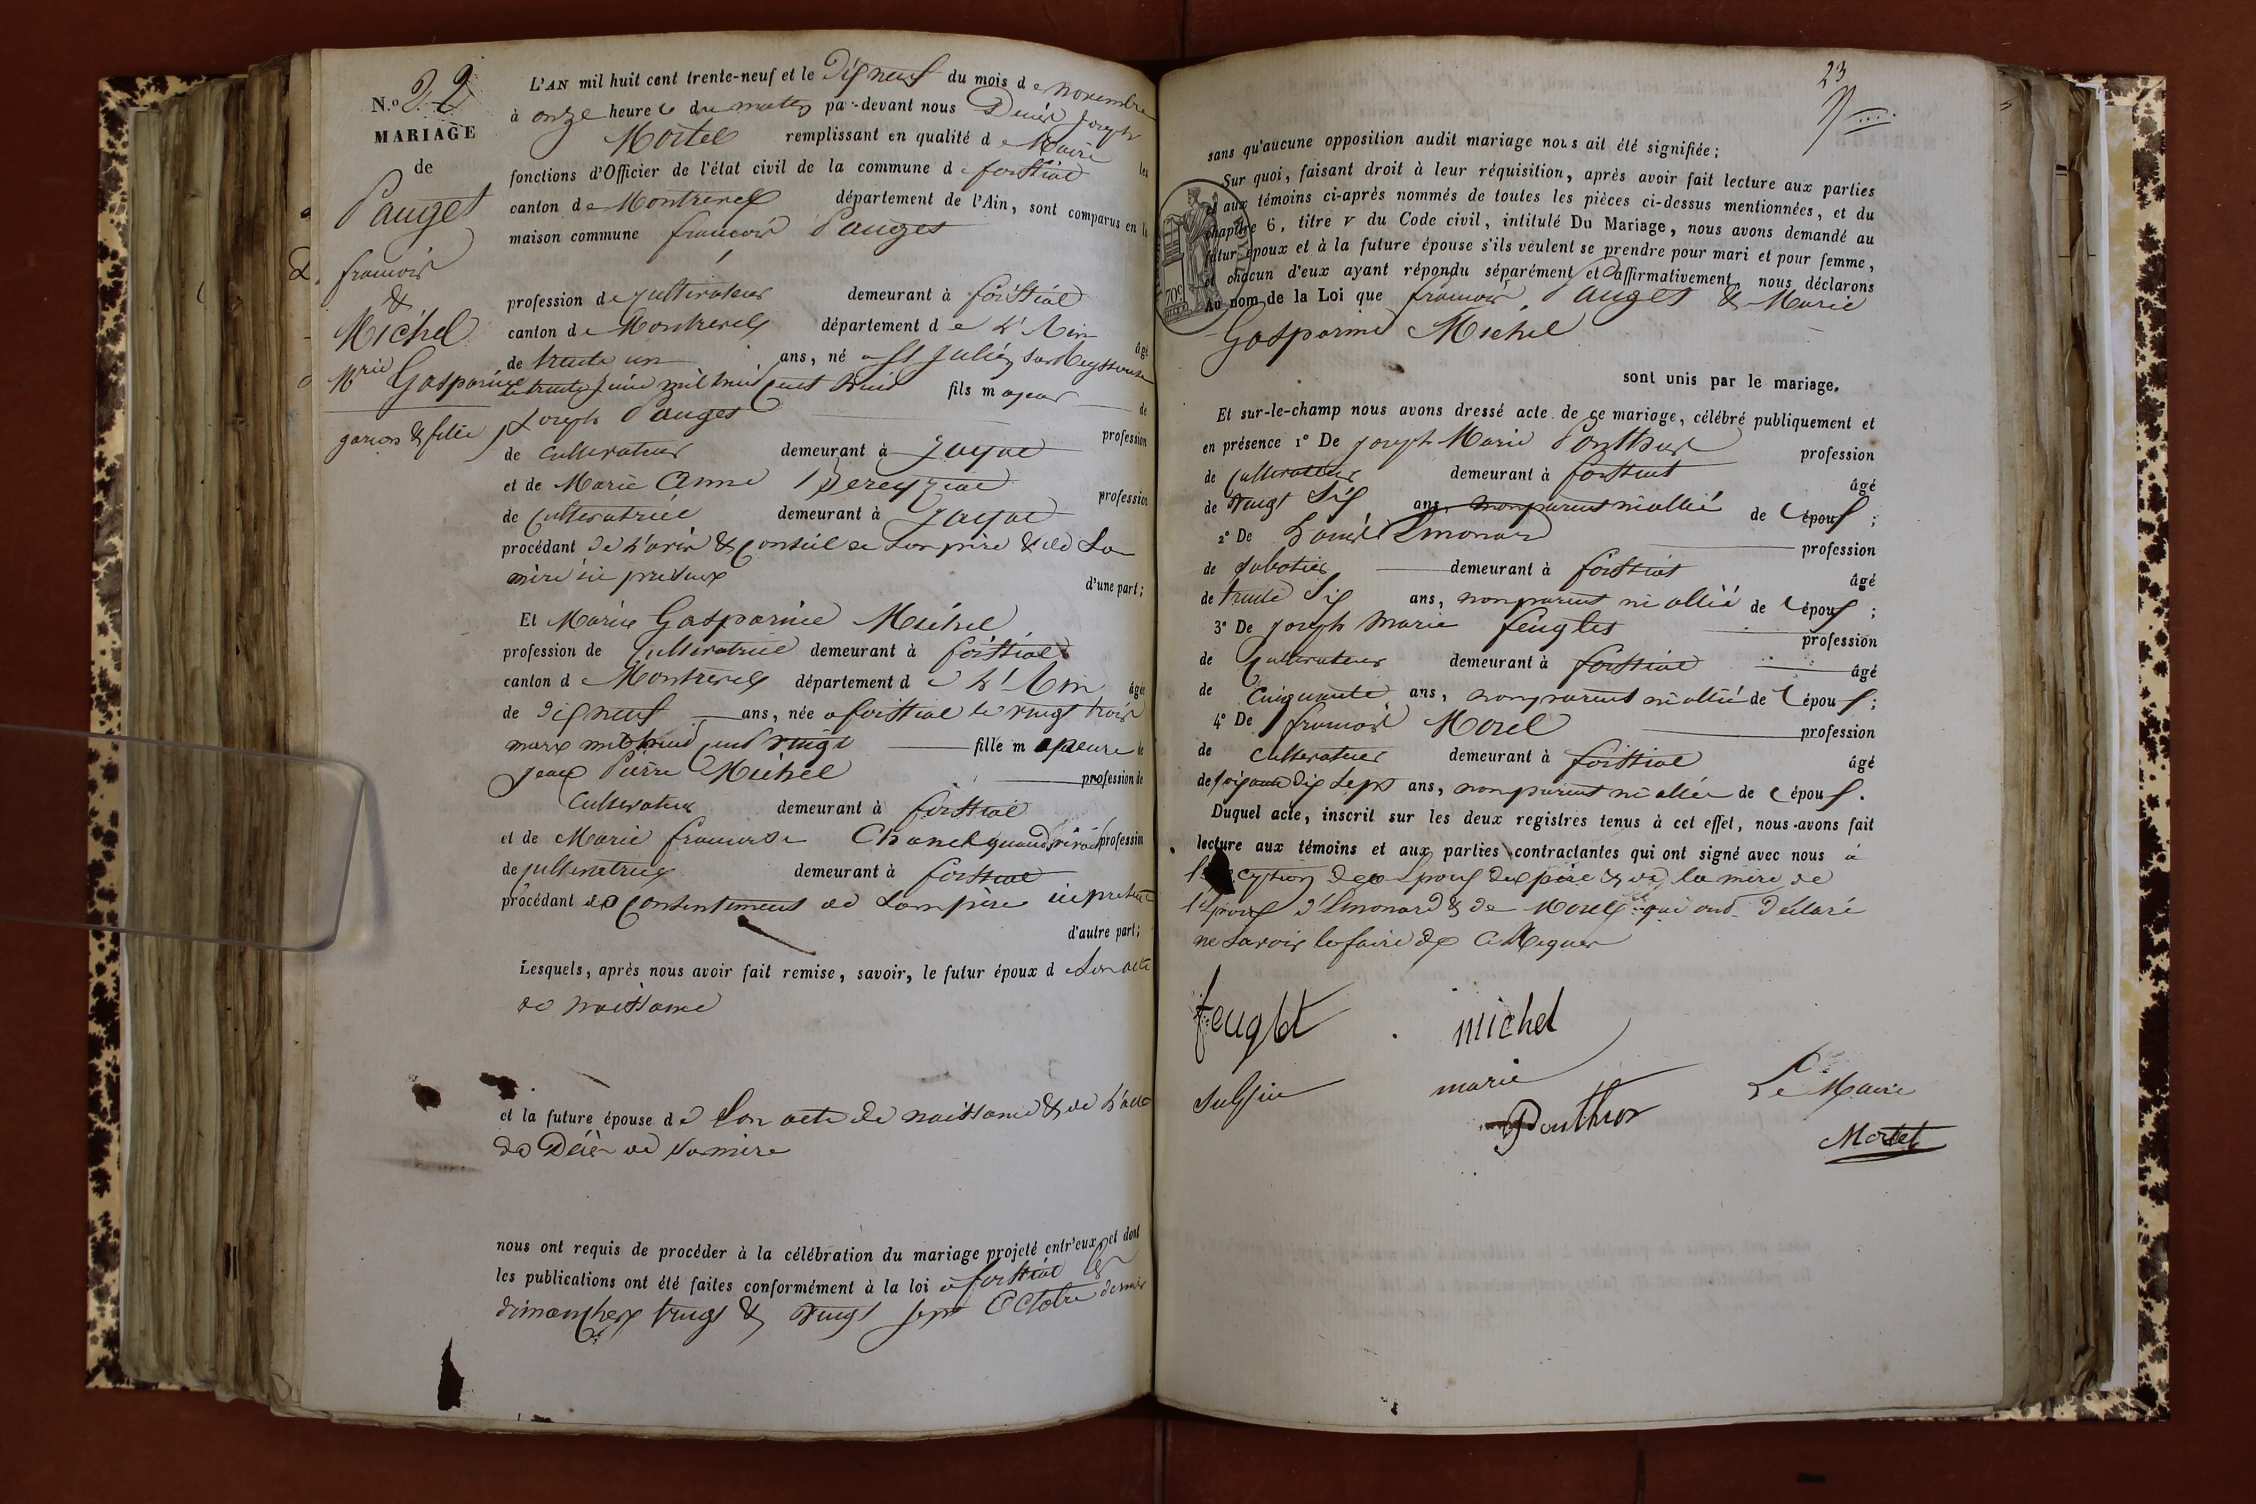 N.o 22
MARIAGE
de
Pauget
francois
&
Michel
Mrie Gasparine
garcon & fille
L'AN mil huit cent trente-neuf et le dix neuf du mois de novembre
à onze heures du matin par-devant nous Denis Joseph
Mortel remplissant en qualité de Maire les
fonctions d'Officier de l'état civil de la commune de foissiat
canton de Montrevel département de l'Ain, sont comparus en la
maison commune francois Pauget
profession de Cultivateur demeurant à foissiat
canton de Montrevel département de L'Ain âgé
de trente un ans, né a St Julien sur Reyssouze
le trente juin mil huit cent huit fils majeur de
Joseph Pauget profession
de Cultivateur demeurant à Jayat
et de Marie Anne Pereyziat profession
de Cultivatrice demeurant à Jayat
procédant de L'avis & Conseil de son père & de Sa
mère ici présents d'une part;
Et Marie Gasparine Michel
profession de Cultivatrice demeurant à foissiat
canton de Montrevel département de L'Ain âgée
de dix neuf ans, née a foissiat le vingt trois
mars mil huit cent vingt fille majeure de
Jean Pierre Michel profession de
Cultivateur demeurant à foissiat
et de Marie francoise Chanel quand vivait profession
de Cultivatrice demeurant à foissiat
procédant du Consentement de Son père ici présent
d'autre part;
Lesquels, après nous avoir fait remise, savoir, le futur époux de Son acte
de naissance
et la future épouse de Son acte de naissance & de L'acte
de Décès de Sa mère
nous ont requis de procéder à la célébration du mariage projeté entr'eux, et dont
les publications ont été faites conformément à la loi à foissiat les
dimanches vingt & vingt sept Octobre dernier
23
sans qu'aucune opposition audit mariage nous ait été signifiée;
Sur quoi, faisant droit à leur réquisition, après avoir fait lecture aux parties
et aux témoins ci-après nommés de toutes les pièces ci-dessus mentionnées, et du
chapitre 6, titre v du Code civil, intitulé Du Mariage, nous avons demandé au
futur époux et à la future épouse s'ils veulent se prendre pour mari et pour femme,
et chacun d'eux ayant répondu séparément et affirmativement, nous déclarons
Au nom de la Loi que francois Pauget & Marie
Gasparine Michel
70c
sont unis par le mariage.
Et sur-le-champ nous avons dressé acte de ce mariage, célébré publiquement et
en présence 1° De Joseph Marie Ponthus profession
de Cultivateur demeurant à foissiat âgé
de vingt Six ans, non parent ni allié de l'époux;
2° De Emonard profession
de Sabotier demeurant à foissiat âgé
de trente Six ans, non parent ni allié de l'époux;
3° De Joseph Marie feuglet profession
de Cultivateur demeurant à foissiat âgé
de Cinquante ans, non parent ni allié de l'époux;
4° De francois Morel profession
de Cultivateur demeurant à foissiat âgé
de soixante dix sept ans, non parent ni allié de l'époux.
Duquel acte, inscrit sur les deux registres tenus à cet effet, nous avons fait
lecture aux témoins et aux parties contractantes qui ont signé avec nous à
l'exception de l'époux du père & de la mère de
l'époux d'Emonard & de Morel qui ont déclaré
ne Savoir le faire de Ce Requis
feuglet michel
marie
Ponthus
Le Maire
Mortel